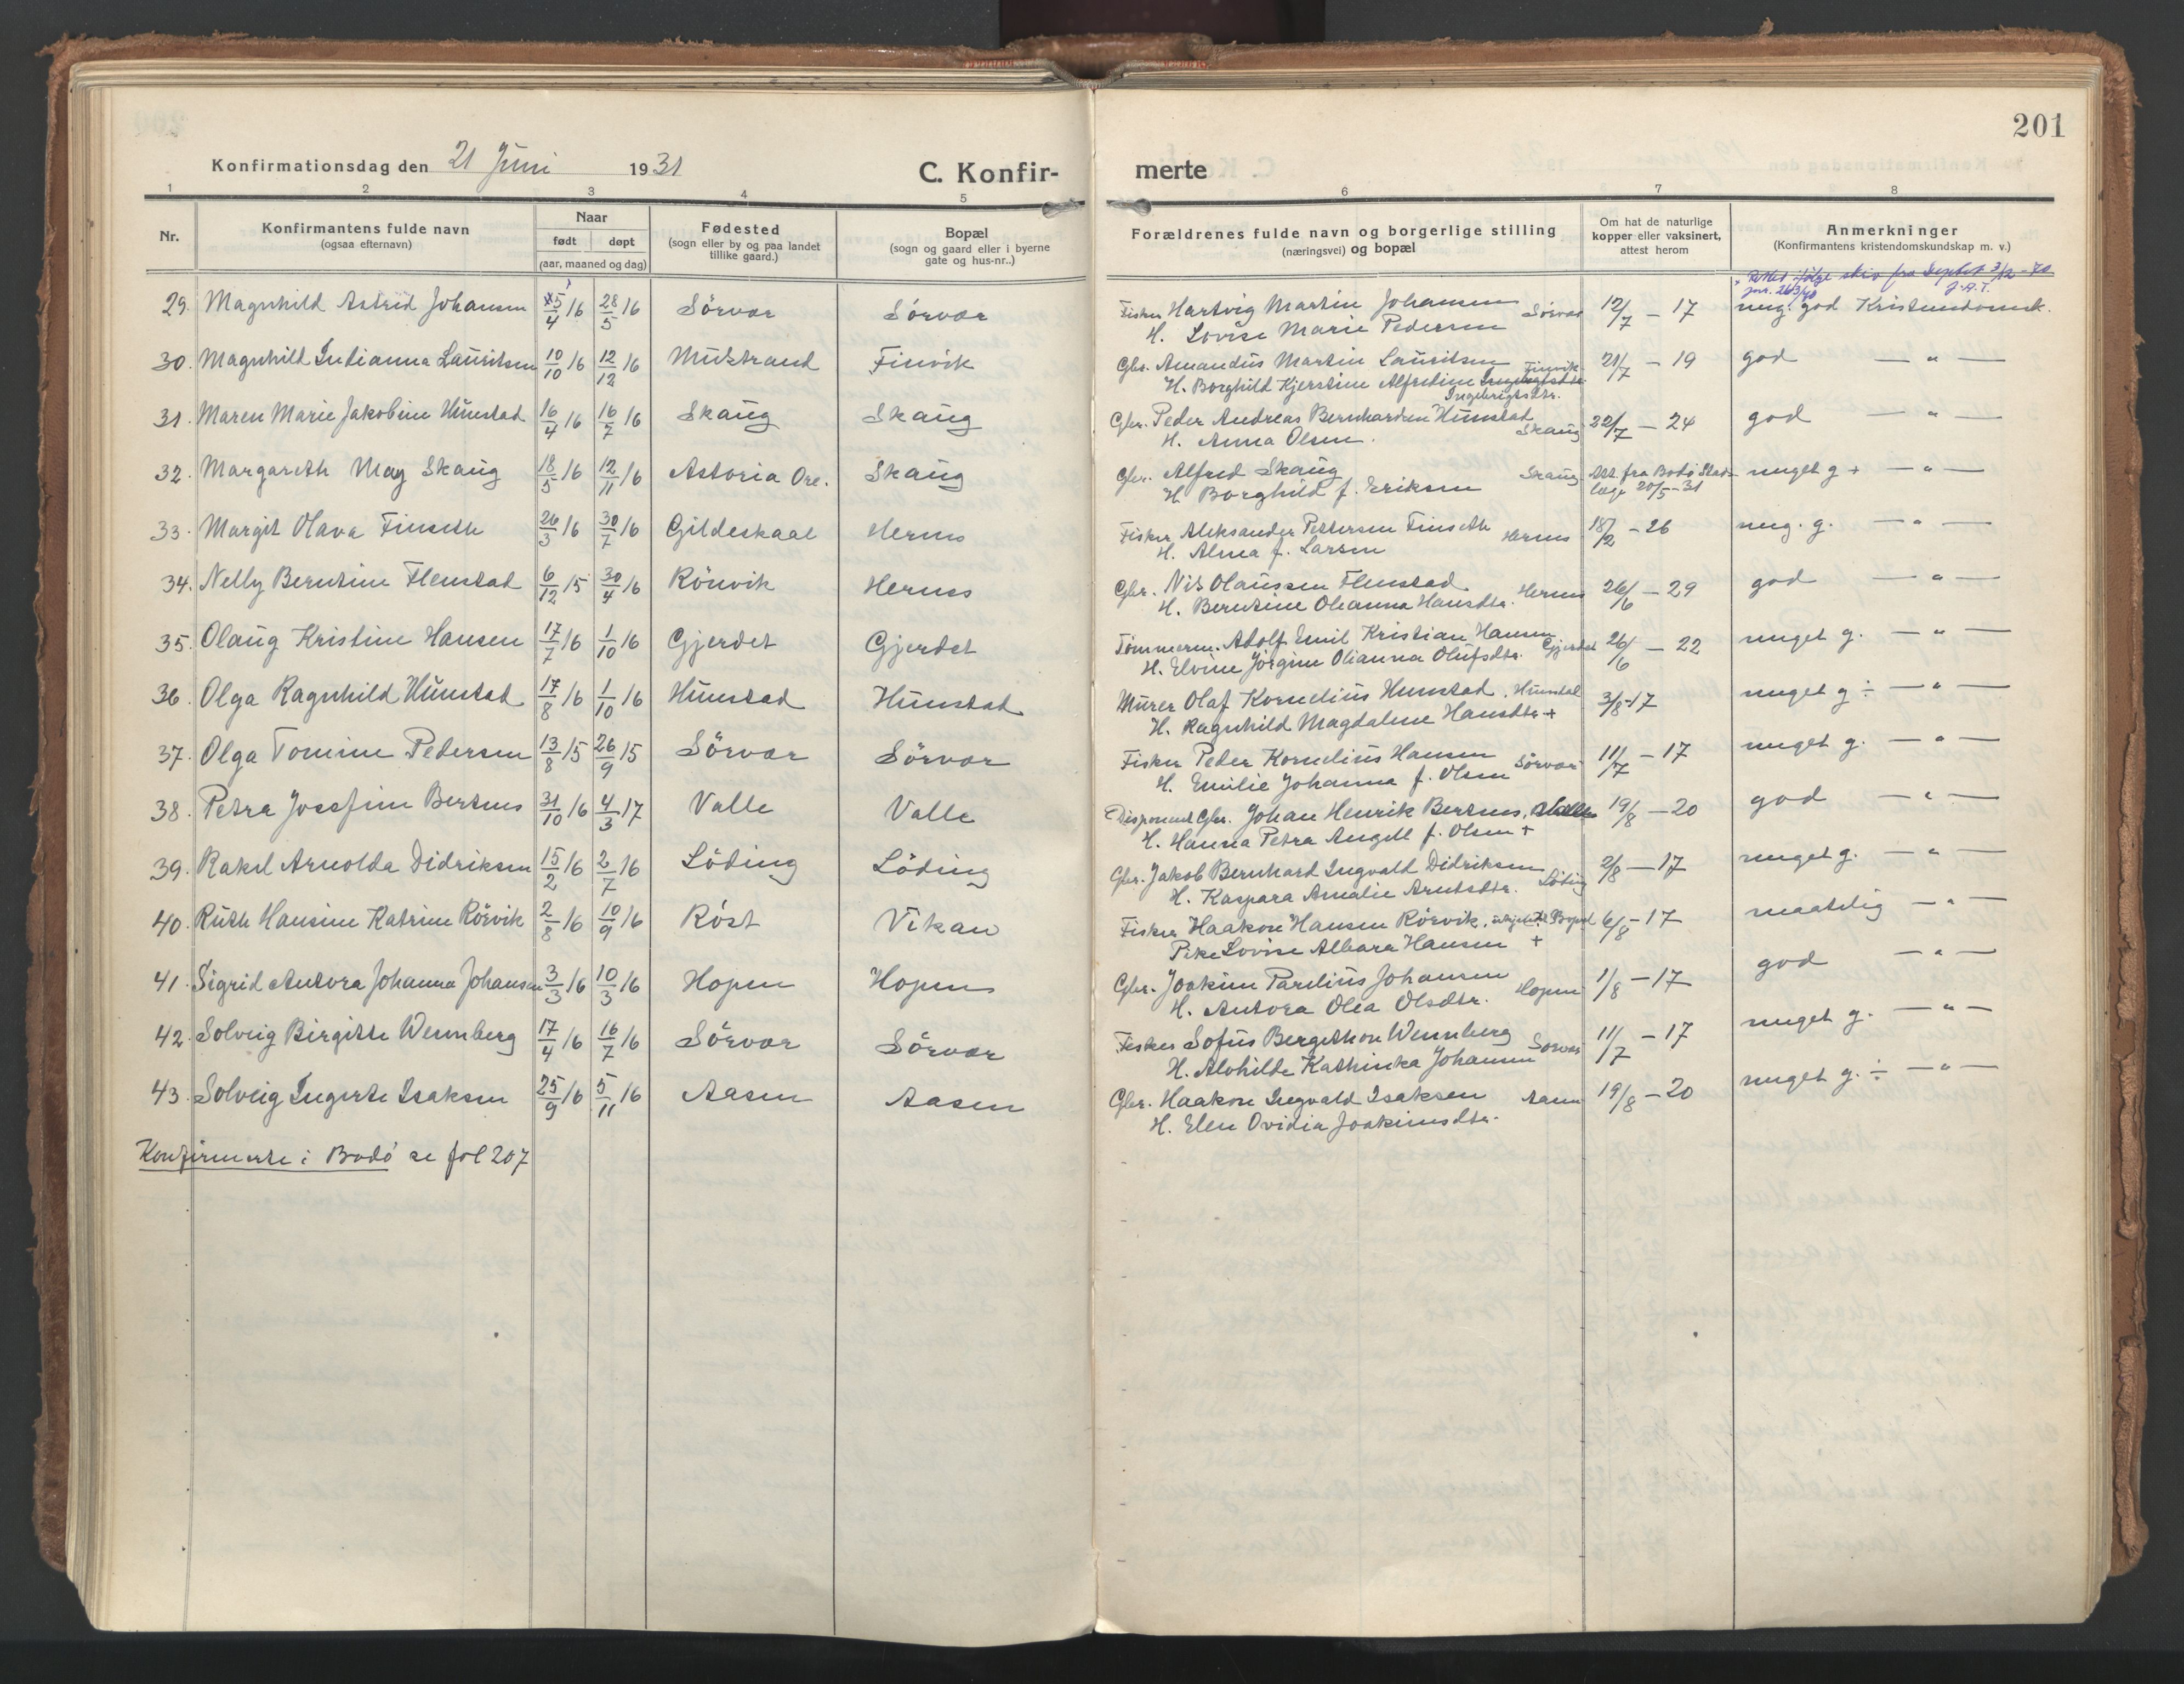 201
Konfirmationsdag den 21 Juni 1931 C. Konfir-merte
1 2 3 4 5 6 7 8
Nr.
Konfirmantens fulde navn
(ogsaa efternavn)
Naar
født døpt
(aar, maaned og dag)
Fødested
(sogn eller by og paa landet
tillike gaard.)
Bopæl
(sogn og gaard eller i byerne
gate og hus-nr..)
Forældrenes fulde navn og borgerlige stilling
(næringsvei) og bopæl
Om hat de naturlige
kopper eller vaksinert,
attest herom
Anmerkninger
(Konfirmantens kristendomskundskap m. v.)
Rettet ifølge skiv fra 3/12-70
jnr. 263/70 J.A.T.
29. Magnhild Astrid Johansen 5/4 16 28/5 16 Sörvær Sörvær Fisker Hartvig Martin Johansen Sörvær 12/7 - 17 meg. god Kristendomsk.
H. Lovise Marie Pedersen
30. Magnhild Indianna Lauritsen 10/10 16 12/12 16 Mulstrand Finvik Gbr. Amandus Martin Lauritsen Finvik 21/7 - 19 god — " —
H. Borghild Kjerstine Alfredine
Ingebrigtsdtr.
31. Maren Marie Jakobine Hunstad 16/4 16 16/7 16 Skaug Skaug Gbr. Peder Andreas Bernhardsen Hunstad Skaug 22/7 - 24 god — " —
H. Anna Olsen.
32. Margareth May Skaug 18/5 16 12/11 16 Astoria Ore. Skaug Gbr. Alfred Skaug Skaug Att. fra Bodø Stads- meget g + — " —
H. Borghild f. Eriksen læge 20/5-31
33. Margit Olava Finseth 26/3 16 30/7 16 Gildeskaal Hernes Fisker Aleksander Pettersen Finseth Hernes 18/2 - 26 meg. g. — " —
H. Alma f. Larsen
34. Nelly Berntine Flenstad 6/12 15 30/4 16 Rönvik Hernes Gbr. Nils Olaussen Flenstad Hernes 26/6 - 29 god — " —
H. Berntine Oleanna Hansdtr.
35. Olaug Kristine Hansen 17/7 16 1/10 16 Gjerdet Gjerdet Tömmerm. Adolf Emil Kristian Hansen Gjerdet 26/6 - 22 meget g. — " —
H. Elvine Jörgine Olianna Olufsdtr.
36. Olga Ragnhild Hunstad 17/8 16 1/10 16 Hunstad Hunstad Murer Olaf Kornelius Hunstad, Hunstad 3/8-17 meget g ÷ — " —
H. Ragnhild Magdalene Hansdtr +
37. Olga Tomine Pedersen 13/8 15 26/9 15 Sörvær Sörvær Fisker Peder Kornelius Hansen Sörvær 11/7 - 17 meget g. — " —
H. Emilie Johanna f. Olsen
38. Petra Josefine Bertnes 31/10 16 4/3 17 Valle Valle Disponent Gbr. Johan Henrik Bertnes, Valle 19/8 - 20 god — " —
H. Hanna Petra Angell f. Olsen +
39. Rakel Arnolda Didriksen 15/2 16 2/7 16 Löding Löding Gbr. Jakob Bernhard Ingvald Didriksen Löding 2/8 - 17 meget g. — " —
H. Kaspara Amalie Arntsdtr.
40. Ruth Hansine Katrine Rörvik 2/8 16 10/9 16 Röst Vikan Fisker Haakon Hansen Rörvik, Bopæl 6/8 - 17 maatelig — " —
Pike Lovise Albara Hansen +
41. Sigrid Antora Johanna Johansen 3/3 16 10/3 16 Hopen Hopen Gbr. Joakim Parelius Johansen Hopen 1/8 - 17 god — " —
H. Antora Olea Olsdtr.
42. Solveig Birgitte Wennberg 17/4 16 16/7 16 Sörvær Sörvær Fisker Sofus Bergethon Wennberg Sörvær 11/7 - 17 meget g. — " —
H. Alvhilde Kathinka Johansen
43. Solveig Ingerte Isaksen 25/9 16 5/11 16 Aasen Aasen Gbr. Haakon Ingvald Isaksen Aasen 19/8 - 20 meget g. ÷ — " —
H. Elen Ovidia Joakimsdtr.
Konfirmerte i Bodö se fol 207